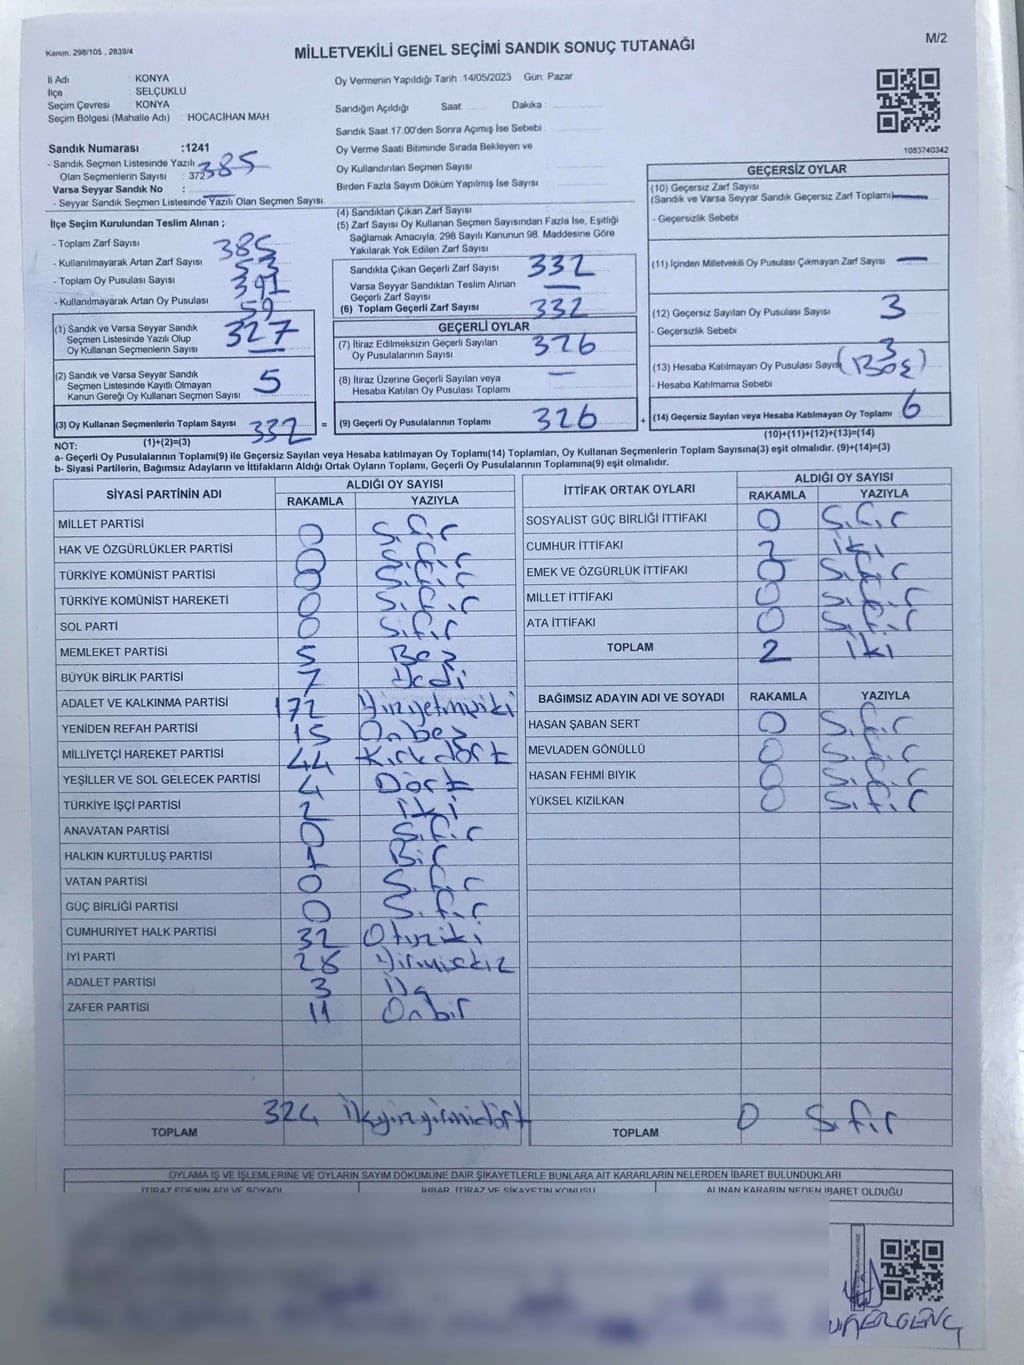 Kanun: 298/105 , 2839/4
MİLLETVEKİLİ GENEL SEÇİMİ SANDIK SONUÇ TUTANAĞI
M/2
İl Adı : KONYA
İlçe : SELÇUKLU
Seçim Çevresi : KONYA
Seçim Bölgesi (Mahalle Adı) : HOCACİHAN MAH
Sandık Numarası :1241
- Sandık Seçmen Listesinde Yazılı
Olan Seçmenlerin Sayısı : 372 385
Varsa Seyyar Sandık No :
- Seyyar Sandık Seçmen Listesinde Yazılı Olan Seçmen Sayısı:
Oy Vermenin Yapıldığı Tarih :14/05/2023 Gün: Pazar
Sandığın Açıldığı Saat: Dakika :
Sandık Saat 17.00'den Sonra Açımış İse Sebebi
Oy Verme Saati Bitiminde Sırada Bekleyen ve
Oy Kullandırılan Seçmen Sayısı
Birden Fazla Sayım Döküm Yapılmış İse Sayısı
1083740342
İlçe Seçim Kurulundan Teslim Alınan ;
- Toplam Zarf Sayısı 385
- Kullanılmayarak Artan Zarf Sayısı 53
- Toplam Oy Pusulası Sayısı 391
- Kullanılmayarak Artan Oy Pusulası 59
(1) Sandık ve Varsa Seyyar Sandık
Seçmen Listesinde Yazılı Olup
Oy Kullanan Seçmenlerin Sayısı 327
(2) Sandık ve Varsa Seyyar Sandık
Seçmen Listesinde Kayıtlı Olmayan
Kanun Gereği Oy Kullanan Seçmen Sayısı 5
(3) Oy Kullanan Seçmenlerin Toplam Sayısı 332 =
(4) Sandıktan Çıkan Zarf Sayısı
(5) Zarf Sayısı Oy Kullanan Seçmen Sayısından Fazla İse, Eşitliği
Sağlamak Amacıyla, 298 Sayılı Kanunun 98. Maddesine Göre
Yakılarak Yok Edilen Zarf Sayısı
Sandıkta Çıkan Geçerli Zarf Sayısı 332
Varsa Seyyar Sandıktan Teslim Alınan
Geçerli Zarf Sayısı —
(6) Toplam Geçerli Zarf Sayısı 332
GEÇERLİ OYLAR
(7) İtiraz Edilmeksizin Geçerli Sayılan
Oy Pusulalarının Sayısı 326
(8) İtiraz Üzerine Geçerli Sayılan veya
Hesaba Katılan Oy Pusulası Toplamı —
(9) Geçerli Oy Pusulalarının Toplamı 326 +
GEÇERSİZ OYLAR
(10) Geçersiz Zarf Sayısı
(Sandık ve Varsa Seyyar Sandık Geçersiz Zarf Toplamı) —
- Geçersizlik Sebebi
(11) İçinden Milletvekili Oy Pusulası Çıkmayan Zarf Sayısı —
(12) Geçersiz Sayılan Oy Pusulası Sayısı 3
- Geçersizlik Sebebi
(13) Hesaba Katılmayan Oy Pusulası Sayısı 3 (Boş)
- Hesaba Katılmama Sebebi
(14) Geçersiz Sayılan veya Hesaba Katılmayan Oy Toplamı 6
NOT: (1)+(2)=(3)
(10)+(11)+(12)+(13)=(14)
a- Geçerli Oy Pusulalarının Toplamı(9) ile Geçersiz Sayılan veya Hesaba katılmayan Oy Toplamı(14) Toplamları, Oy Kullanan Seçmenlerin Toplam Sayısına(3) eşit olmalıdır. (9)+(14)=(3)
b- Siyasi Partilerin, Bağımsız Adayların ve İttifakların Aldığı Ortak Oyların Toplamı, Geçerli Oy Pusulalarının Toplamına(9) eşit olmalıdır.
SİYASİ PARTİNİN ADI ALDIĞI OY SAYISI
RAKAMLA YAZIYLA
MİLLET PARTİSİ 0 Sıfır
HAK VE ÖZGÜRLÜKLER PARTİSİ 0 Sıfır
TÜRKİYE KOMÜNİST PARTİSİ 0 Sıfır
TÜRKİYE KOMÜNİST HAREKETİ 0 Sıfır
SOL PARTİ 0 Sıfır
MEMLEKET PARTİSİ 5 Beş
BÜYÜK BİRLİK PARTİSİ 7 Yedi
ADALET VE KALKINMA PARTİSİ 172 Yüzyetmişiki
YENİDEN REFAH PARTİSİ 15 Onbeş
MİLLİYETÇİ HAREKET PARTİSİ 44 Kırkdört
YEŞİLLER VE SOL GELECEK PARTİSİ 4 Dört
TÜRKİYE İŞÇİ PARTİSİ 2 İki
ANAVATAN PARTİSİ 0 Sıfır
HALKIN KURTULUŞ PARTİSİ 1 Bir
VATAN PARTİSİ 0 Sıfır
GÜÇ BİRLİĞİ PARTİSİ 0 Sıfır
CUMHURİYET HALK PARTİSİ 32 Otuziki
İYİ PARTİ 28 Yirmisekiz
ADALET PARTİSİ 3 Üç
ZAFER PARTİSİ 11 Onbir
TOPLAM 324 Üçyüzyirmidört
İTTİFAK ORTAK OYLARI ALDIĞI OY SAYISI
RAKAMLA YAZIYLA
SOSYALİST GÜÇ BİRLİĞİ İTTİFAKI 0 Sıfır
CUMHUR İTTİFAKI 2 İki
EMEK VE ÖZGÜRLÜK İTTİFAKI 0 Sıfır
MİLLET İTTİFAKI 0 Sıfır
ATA İTTİFAKI 0 Sıfır
TOPLAM 2 İki
BAĞIMSIZ ADAYIN ADI VE SOYADI RAKAMLA YAZIYLA
HASAN ŞABAN SERT 0 Sıfır
MEVLADEN GÖNÜLLÜ 0 Sıfır
HASAN FEHMİ BIYIK 0 Sıfır
YÜKSEL KIZILKAN 0 Sıfır
TOPLAM 0 Sıfır
OYLAMA İŞ VE İŞLEMLERİNE VE OYLARIN SAYIM DÖKÜMÜNE DAİR ŞİKAYETLERLE BUNLARA AİT KARARLARIN NELERDEN İBARET BULUNDUKLARI
İTİRAZ EDENİN ADI VE SOYADI İHBAR, İTİRAZ VE ŞİKAYETİN KONUSU ALINAN KARARIN NEDEN İBARET OLDUĞU